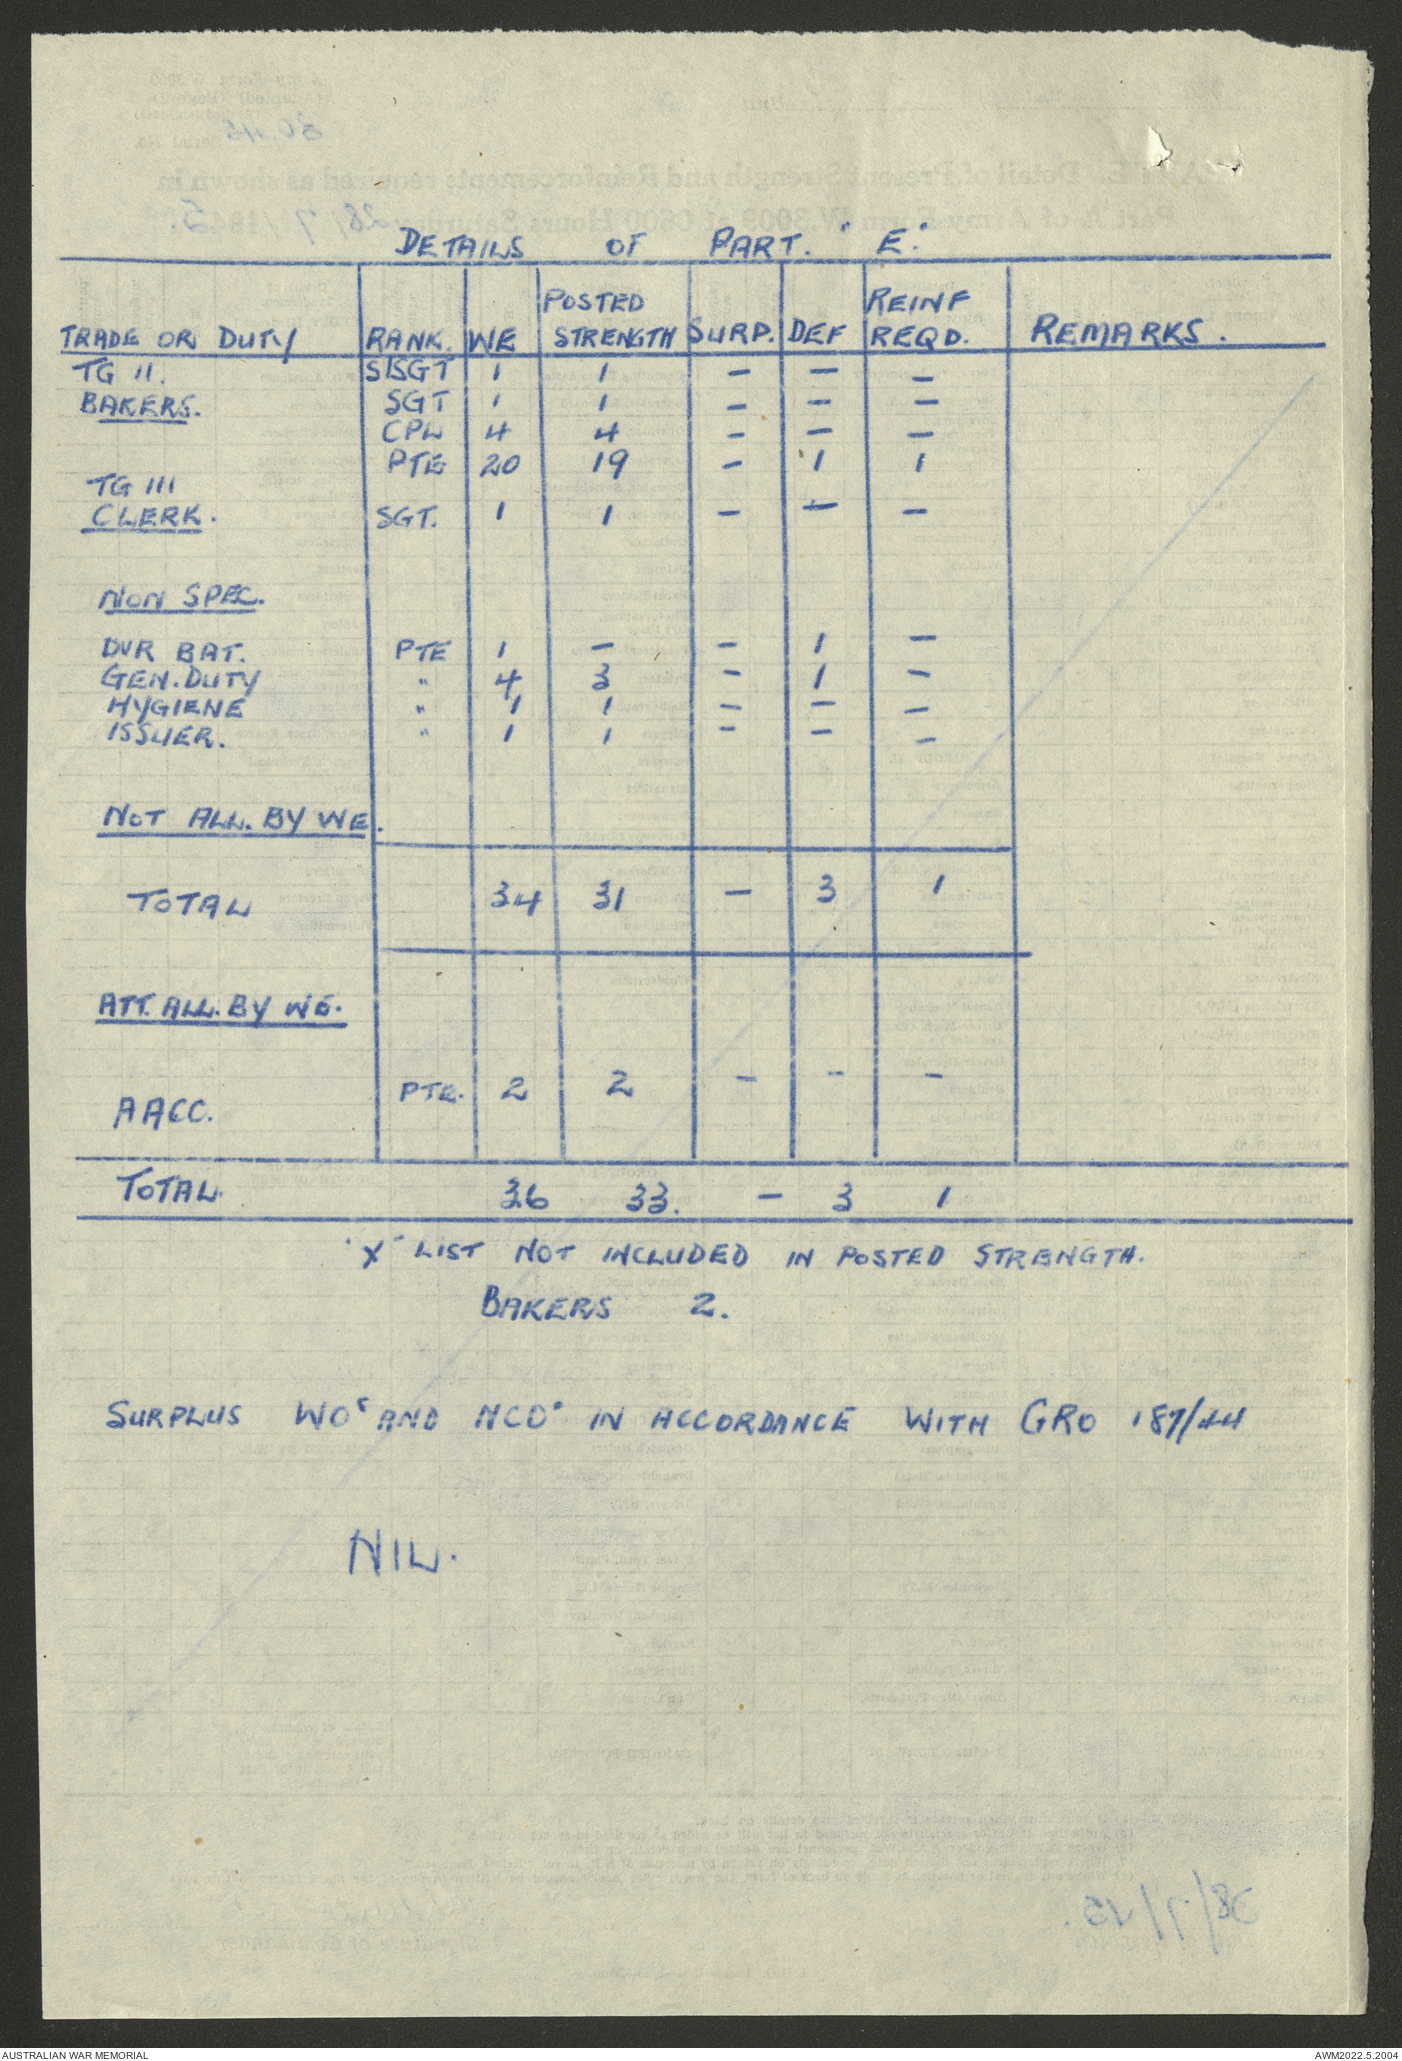 DETAILS OF PART. "E."
TRADE OR DUTY RANK. WE POSTED STRENGTH SURP. DEF REINF REQD. REMARKS.
TG II. S/SGT 1 1 — — —
BAKERS. SGT 1 1 — — —
CPL 4 4 — — —
PTE 20 19 — 1 1
TG III
CLERK. SGT. 1 1 — — —
NON SPEC.
DVR BAT. PTE 1 — — 1 —
GEN. DUTY " 4 3 — 1 —
HYGIENE " 1 1 — — —
ISSUER. " 1 1 — — —
NOT ALL. BY WE.
TOTAL 34 31 — 3 1
ATT. ALL. BY WE.
AACC. PTE. 2 2 — — —
TOTAL. 36 33. — 3 1
"X" LIST NOT INCLUDED IN POSTED STRENGTH.
BAKERS 2.
SURPLUS WOs AND NCOs IN ACCORDANCE WITH GRO 187/44
NIL.
AUSTRALIAN WAR MEMORIAL
AWM2022.5.2004